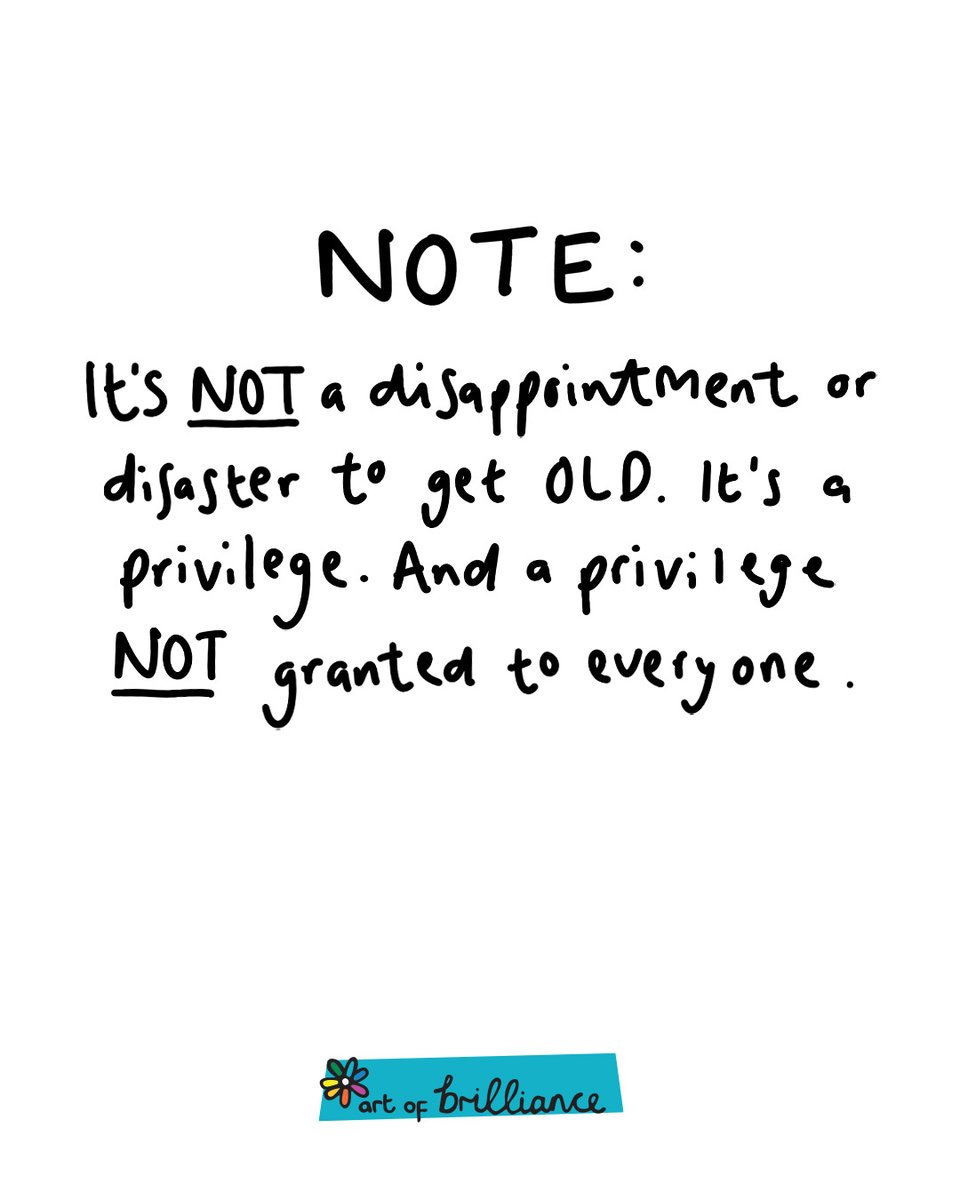 NOTE:
It's NOT a disappointment or
disaster to get OLD. It's a
privilege. And a privilege
NOT granted to everyone.
art of brilliance